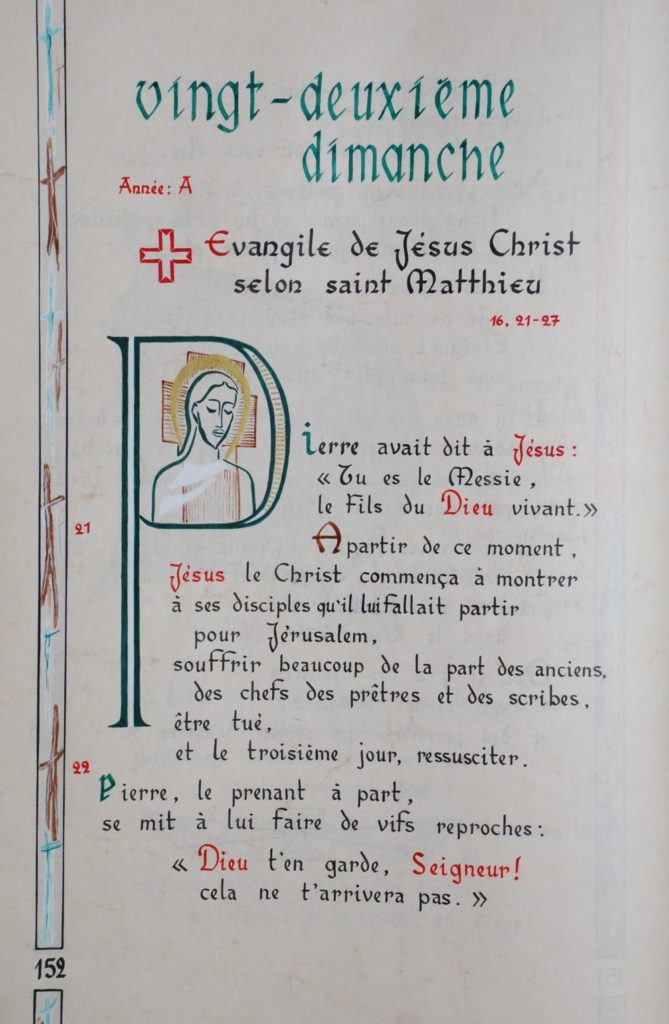 vingt-deuxième
dimanche
Année: A
Evangile de Jésus Christ
selon saint Matthieu
16, 21-27
Pierre avait dit à Jésus :
« Tu es le Messie,
le Fils du Dieu vivant. »
21
A partir de ce moment,
Jésus le Christ commença à montrer
à ses disciples qu'il lui fallait partir
pour Jérusalem,
souffrir beaucoup de la part des anciens,
des chefs des prêtres et des scribes,
être tué,
et le troisième jour, ressusciter.
22
Pierre, le prenant à part,
se mit à lui faire de vifs reproches :
« Dieu t'en garde, Seigneur !
cela ne t'arrivera pas. »
152